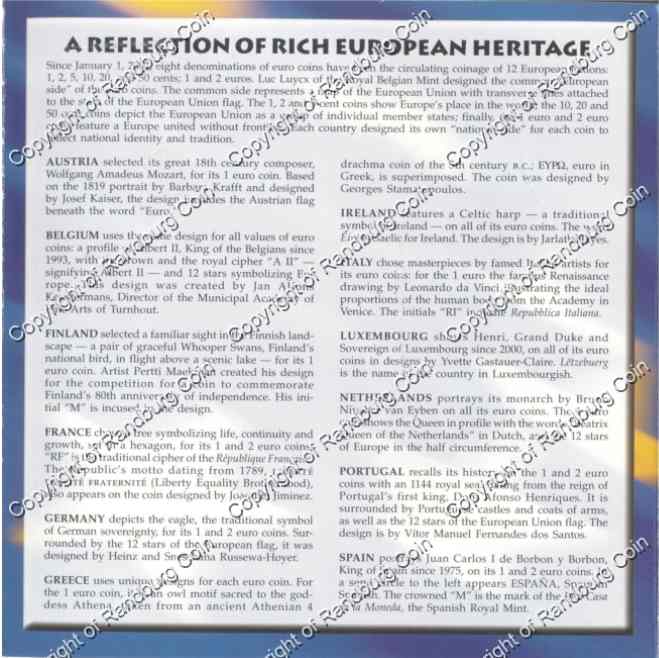 A REFLECTION OF RICH EUROPEAN HERITAGE
Since January 1, eight denominations of euro coins have the circulating coinage of 12 European
1, 2, 5, 10, 20, 50 cents; 1 and 2 euros. Luc Luycx of Royal Belgian Mint designed the common European
side" of the coins. The common side represents a of the European Union with transverse lines attached
to the stars of the European Union flag. The 1, 2 and 5 cent coins show Europe's place in the world; the 10, 20 and
50 cent coins depict the European Union as a group of individual member states; finally, the 1 euro and 2 euro
feature a Europe united without frontiers. Each country designed its own "national side" for each coin to
reflect national identity and tradition.
AUSTRIA selected its great 18th century composer,
Wolfgang Amadeus Mozart, for its 1 euro coin. Based
on the 1819 portrait by Barbara Krafft and designed
by Josef Kaiser, the design includes the Austrian flag
beneath the word "Euro."
BELGIUM uses the same design for all values of euro
coins: a profile of Albert II, King of the Belgians since
1993, with his crown and the royal cipher "A II" —
signifying Albert II — and 12 stars symbolizing
rope. This design was created by Jan
Director of the Municipal Academy of
Arts of Turnhout.
FINLAND selected a familiar sight in the Finnish land-
scape — a pair of graceful Whooper Swans, Finland's
national bird, in flight above a scenic lake — for its 1
euro coin. Artist Pertti created his design
for the competition for a coin to commemorate
Finland's 80th anniversary of independence. His ini-
tial "M" is incused in the design.
FRANCE chose a tree symbolizing life, continuity and
growth, set in a hexagon, for its 1 and 2 euro coins.
"RF" is the traditional cipher of the République Française.
The Republic's motto dating from 1789, LIBERTÉ
ÉGALITÉ FRATERNITÉ (Liberty Equality Brotherhood),
also appears on the coin designed by Joaquin Jiminez.
GERMANY depicts the eagle, the traditional symbol
of German sovereignty, for its 1 and 2 euro coins. Sur-
rounded by the 12 stars of the European flag, it was
designed by Heinz and Sneschana Russewa-Hoyer.
GREECE uses unique designs for each euro coin. For
the 1 euro coin, an owl motif sacred to the god-
dess Athena, taken from an ancient Athenian 4
drachma coin of the 5th century B.C.; ΕΥΡΩ, euro in
Greek, is superimposed. The coin was designed by
Georges Stamatopoulos.
IRELAND features a Celtic harp — a traditional
symbol of Ireland — on all of its euro coins. The word
Gaelic for Ireland. The design is by Jarlath Hayes.
ITALY chose masterpieces by famed Italian artists for
its euro coins: for the 1 euro the famous Renaissance
drawing by Leonardo da Vinci illustrating the ideal
proportions of the human body from the Academy in
Venice. The initials "RI" indicate Repubblica Italiana.
LUXEMBOURG shows Henri, Grand Duke and
Sovereign of Luxembourg since 2000, on all of its euro
coins in designs by Yvette Gastauer-Claire. Lëtzebuerg
is the name of the country in Luxembourgish.
NETHERLANDS portrays its monarch by Bruno
Ninaber van Eyben on all its euro coins. The 1 euro
shows the Queen in profile with the words "Beatrix
Queen of the Netherlands" in Dutch, and the 12 stars
of Europe in the half circumference.
PORTUGAL recalls its history on the 1 and 2 euro
coins with an 1144 royal seal dating from the reign of
Portugal's first king, Dom Afonso Henriques. It is
surrounded by Portugal's castles and coats of arms,
as well as the 12 stars of the European Union flag. The
design is by Vítor Manuel Fernandes dos Santos.
SPAIN portrays Juan Carlos I de Borbon y Borbon,
King of Spain since 1975, on its 1 and 2 euro coins. In
a semi-circle to the left appears ESPAÑA, Spain in
Spanish. The crowned "M" is the mark of the Real Casa
de la Moneda, the Spanish Royal Mint.
Copyright of Randburg Coin